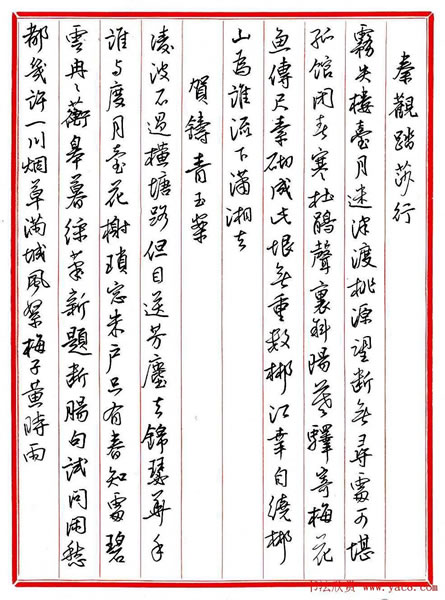 秦觀踏莎行
霧失樓臺月迷津渡桃源望斷無尋處可堪
孤館閉春寒杜鵑聲裏斜陽暮驛寄梅花
魚傳尺素砌成此恨無重數郴江幸自繞郴
山為誰流下瀟湘去
賀鑄青玉案
淩波不過橫塘路但目送芳塵去錦瑟華年
誰与度月臺花榭瑣窓朱户只有春知處碧
雲冉〻蘅皋暮綵筆新題斷腸句試問閑愁
都幾許一川烟草滿城風絮梅子黄時雨
书法欣赏 www.yac8.com